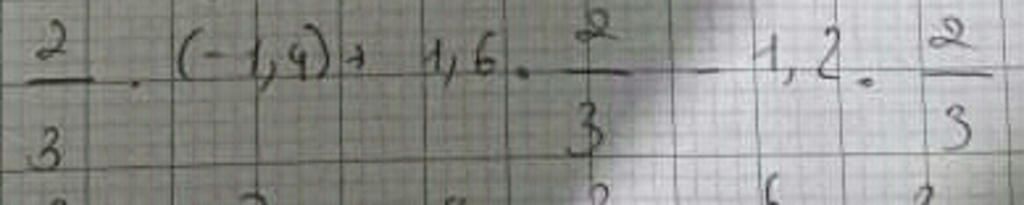 2/3 · (-1,4) + 1,6 · 2/3 - 1,2 · 2/3